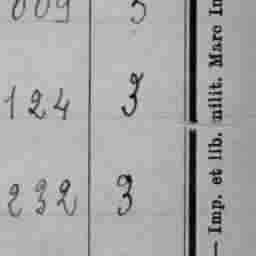 009 3
124 3
232 3
— Imp. et lib. milit. Marc Im